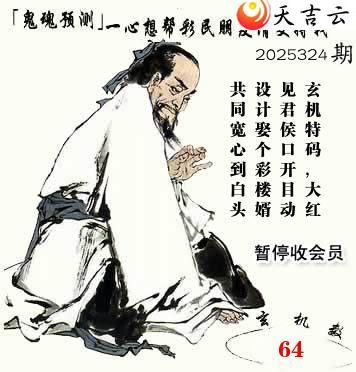 天吉云
「鬼魂预测」一心想帮彩民朋
2025324期
玄机特码，大红
见君侯口开目动
设计娶个彩楼婿
共同宽心到白头
暂停收会员
玄机数
64